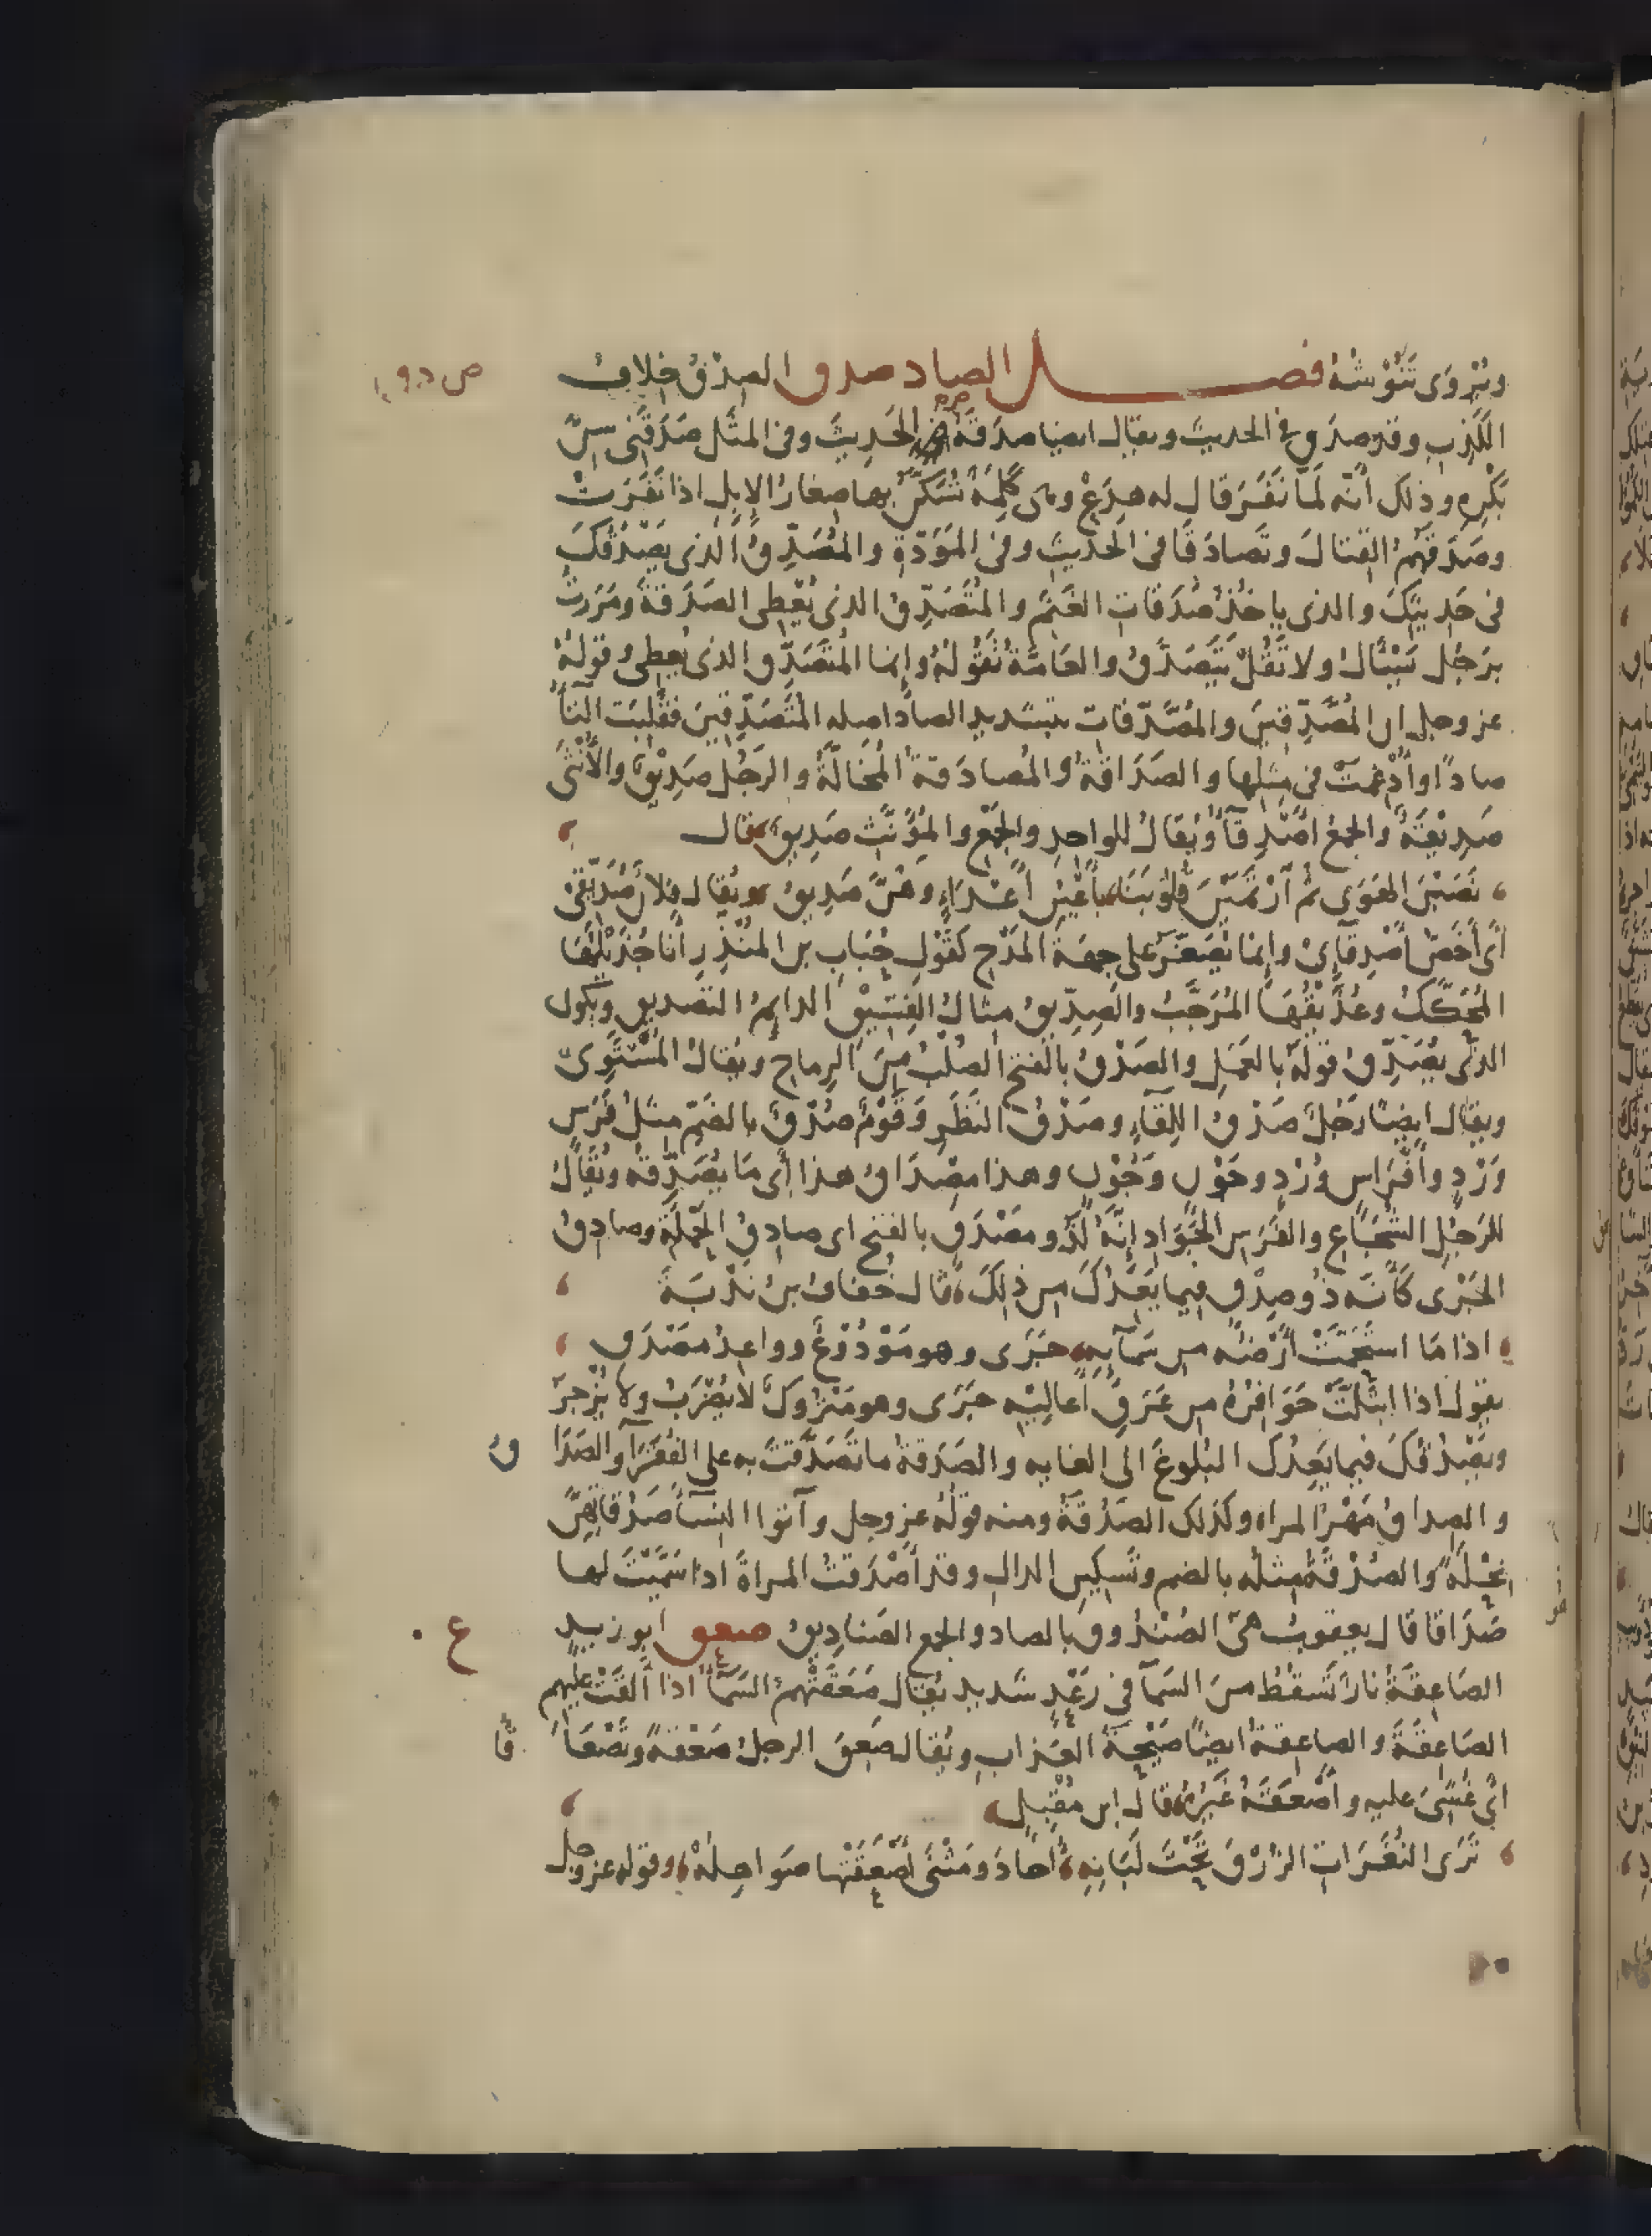 ويُروَى تَنُوشُهُ فصل الصاد صدق الصِدْقُ خِلافُ
ص د ق
الكَذِبِ وقد صدق في الحديث ويقال ايضا صدقَهُ الحَدِيثَ وفي المثَل صَدَقَني سِنَّ
بَكْرِهِ وذلك أنّه لمّا نَفَرَ قال له هِدَعْ وهي كَلِمَةٌ تُسَكَّنُ بها صِغارُ الإبِلِ اذا نَفَرَتْ
وصَدَقُهُمُ القِتالَ وتَصادَقَا في الحَديثِ وفي المَوَدّةِ والمُصَدِّقُ الّذي يُصَدِّقُكَ
في حَدِيثِكَ والذي ياخُذُ صَدَقاتِ الغَنَمِ والمُتَصَدِّقُ الذي يُعْطِي الصَدَقَةَ ومَرَرتُ
برَجُلٍ يَسْأَلُ ولا تَقُلْ يَتَصَدَّقُ والعَامَّةُ تَقُولُهُ وإنما المُتَصَدِّقُ الذي يُعطِي وقولُهُ
عز وجل ان المُصَّدِّقِينَ والمُصَّدِّقاتِ بتشديد الصاد اصله المُتَصَدِّقِينَ فقُلِبَت التآءُ
صادًا وأُدْغِمَتْ في مثلها والصَدَاقَةُ والمُصادَقةُ المُخَالَّةُ والرَجُلُ صَدِيْقٌ والأُنْثَى
صَدِيقَةٌ والجمعُ أَصْدِقآءُ ويُقالُ للواحدِ والجَمْعِ والمُؤَنَّثِ صَدِيقٌ قال
نَصَبْنَ الهَوَى ثم ٱرْتَمَيْنَ قُلُوبَنَا بأَعْيُنِ أَعْدَاءٍ وهُنَّ صَدِيقُ ويُقال فلانٌ صُدَيِّقِي
أي أَخَصُّ أَصْدِقآئي وإنما يُصَغَّرُ على جهةِ المَدْحِ كقَوْلِ حُبَابِ بن المُنْذِرِ أنا جُذَيْلُهَا
المُحَكَّكُ وعُذَيْقُهَا المُرَجَّبُ والصِدِّيقُ مثالُ الفِسِّيْقِ الدايِمُ التصديقِ ويكون
الذي يُصَدِّقُ قولَهُ بالعَمَلِ والصَدْقُ بالفتح الصُلْبُ مِنَ الرِماحِ ويُقالُ المُسْتَوِي
ويقال ايضًا رَجُلٌ صَدْقُ اللِقآءِ وصَدْقُ النَظَرِ وَقَوْمٌ صُدْقٌ بالضَمِّ مثلُ فَرَسٍ
وَرْدٍ وأَفْرَاسٍ وُرْدٍ وجَوْنٍ وَجُوْنٍ وهذا مِصْدَاقُ هذا أي مَا يُصَدِّقُهُ ويُقالُ
للرَجُلِ الشُجَاعِ والفَرَسِ الجَوَادِ إِنَّهُ لَذُو مَصْدَقٍ بالفتح اي صادِقُ الحَمْلَةِ وصادِقُ
الجَرْيِ كَأَنَّهُ ذُو صِدْقٍ فيما يَعِدُكَ من ذلِكَ قال خُفافُ بنُ نَدْبَةَ
اذا مَا اسْتَحَمَّتْ أَرْضُهُ من سَمآئِهِ جَرَى وهو مَوْدُوْعٌ وواعِدُ مَصْدَقِ
يقول اذا ابْتَلَّتْ حَوَافِرُهُ من عَرَقِ أَعَالِيْهِ جَرَى وهو مَتْرُوكٌ لا يُضْرَبُ ولا يُزْجَرُ
ويَصْدُقُكَ فيما يَعِدُكَ البُلُوغَ الى الغايه والصَدَقةُ ما تَصَدَّقْتَ به على الفُقَرآءِ والصَدَا
قُ
والصِداقُ مَهْرُ المراه وكذلك الصَدُقَةُ ومنه قولُهُ عز وجل وآتوا النسآءَ صَدُقاتِهِنَّ
نِحْلَةً والصُدْقَةُ مِثلُه بالضم وتَسكِينِ الدالِ وقد أَصْدَقْتُ المراةَ اذا سَمَّيْتَ لها
صَدَاقًا قال يعقوبُ هي الصُنْدُوقُ بالصاد والجمع الصَنادِيقُ صعق ابو زيد
ع
الصَاعِقَةُ نارٌ تَسْقُطُ مِنَ السَمآءِ في رَعْدٍ شديد يُقال صَعَقَتْهُمُ السَمآءُ اذا أَلْقَتْ عليهم
الصَاعِقَةَ والصاعِقةُ ايضًا صَيْحَةُ العَذابِ ويُقال صَعِقَ الرجلُ صَعْقةً وتَصْعَا
قًا
أي غُشِيَ عليه وأَصْعَقَهُ غَيْرُهُ قال ابن مُقْبِلٍ
تَرَى النُعَرَاتِ الزُرْقَ تَحْتَ لَبَانِهِ أُحادَ ومَثْنَى أَصْعَقَتْها صَواهِلُهْ وقوله عز وجل